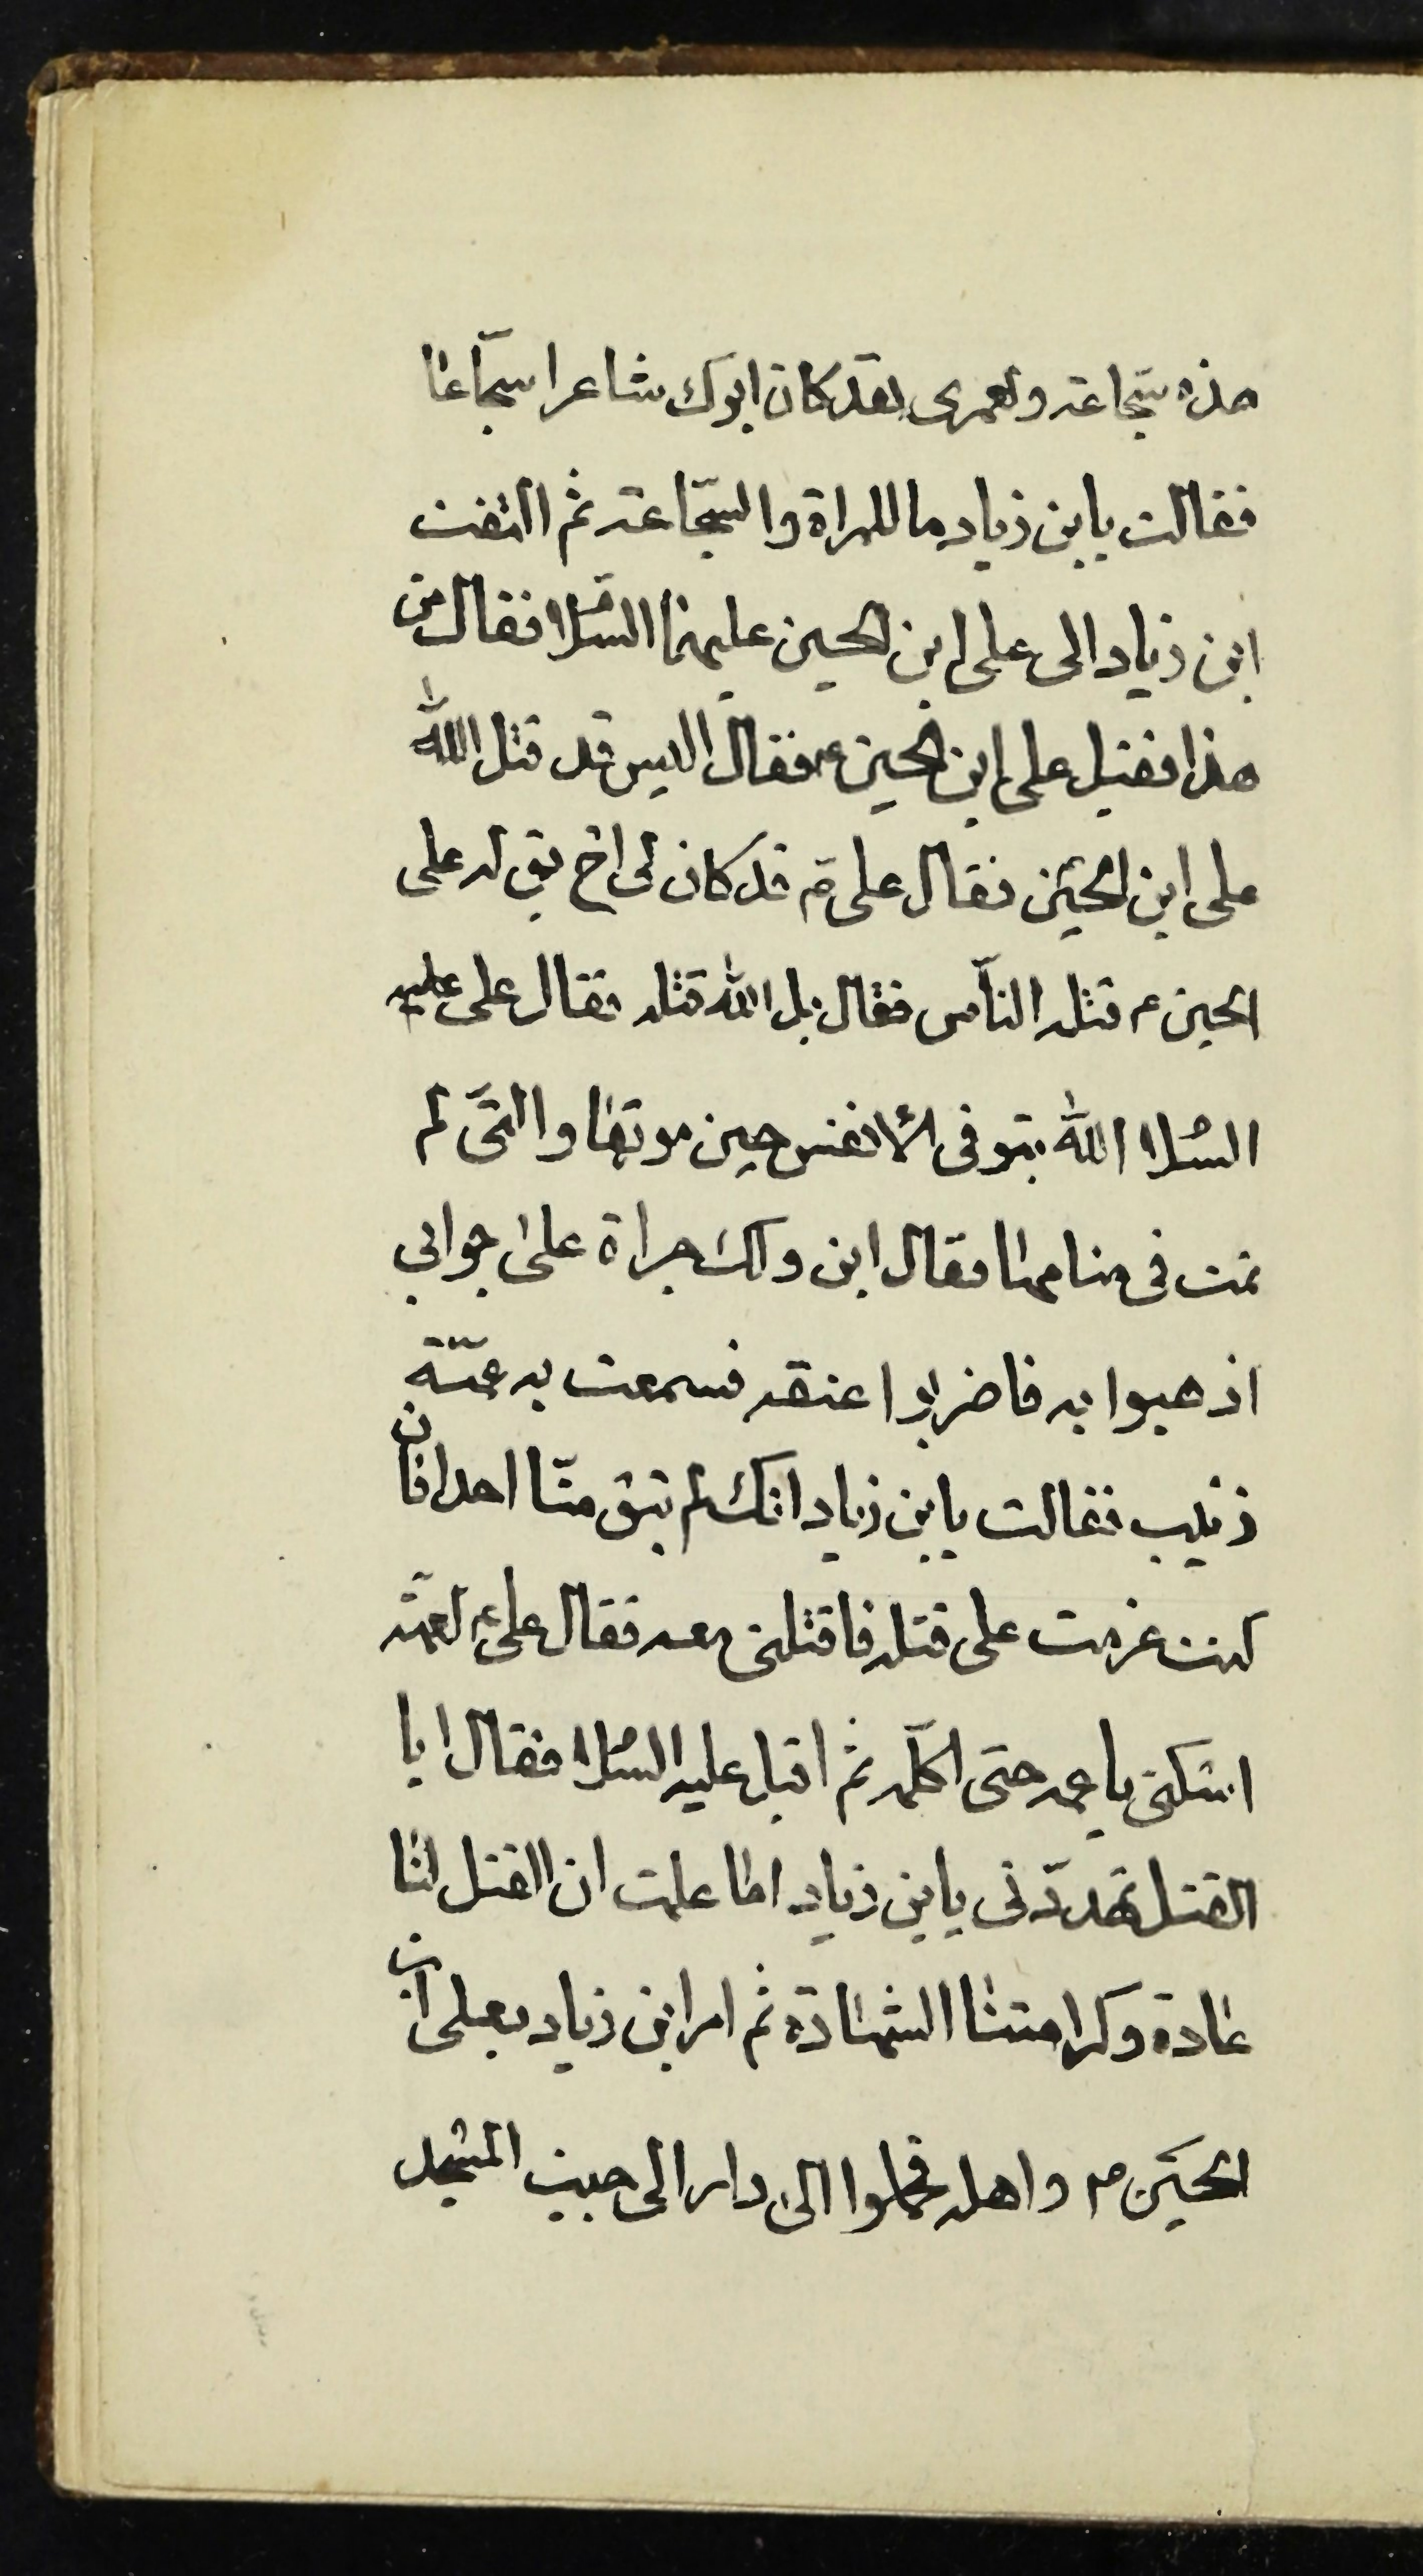 هذه سجّاعة ولعمرى لقد كان ابوك شاعرا سجّاعا
فقالت يابن زياد ما للمراة والسجّاعة ثم التفت
ابن زياد الى على ابن الحسين عليهما السّلام فقال من
هذا فقيل على ابن الحسين ع فقال اليس قد قتل الله
على ابن الحسين فقال على قد كان لى اخ يق له على
الحسين ع قتله النّاس فقال بل الله قتله فقال على عليه
السّلام الله يتوفى الأنفس حين موتها والتّى لم
تمت فى منامها فقال ابن ولك جراة على جوابي
اذهبوا به فاضربوا عنقه فسمعت به عمّتة
زينب فقالت يابن زياد انّك لم تبق منّا احدا فان
كنت عزمت على قتله فاقتلنى معه فقال على ع لعمّته
اسكتى يا عمه حتى اكلّمه ثم اقبل عليه السّلام فقال ابا
القتل تهدّدنى يابن زياد اما علمت ان القتل لنا
عادة وكرامتنا الشهادة ثم امر ابن زياد بعلى ابن
الحسين ع واهله فحملوا الى دار الى جيب المسجد